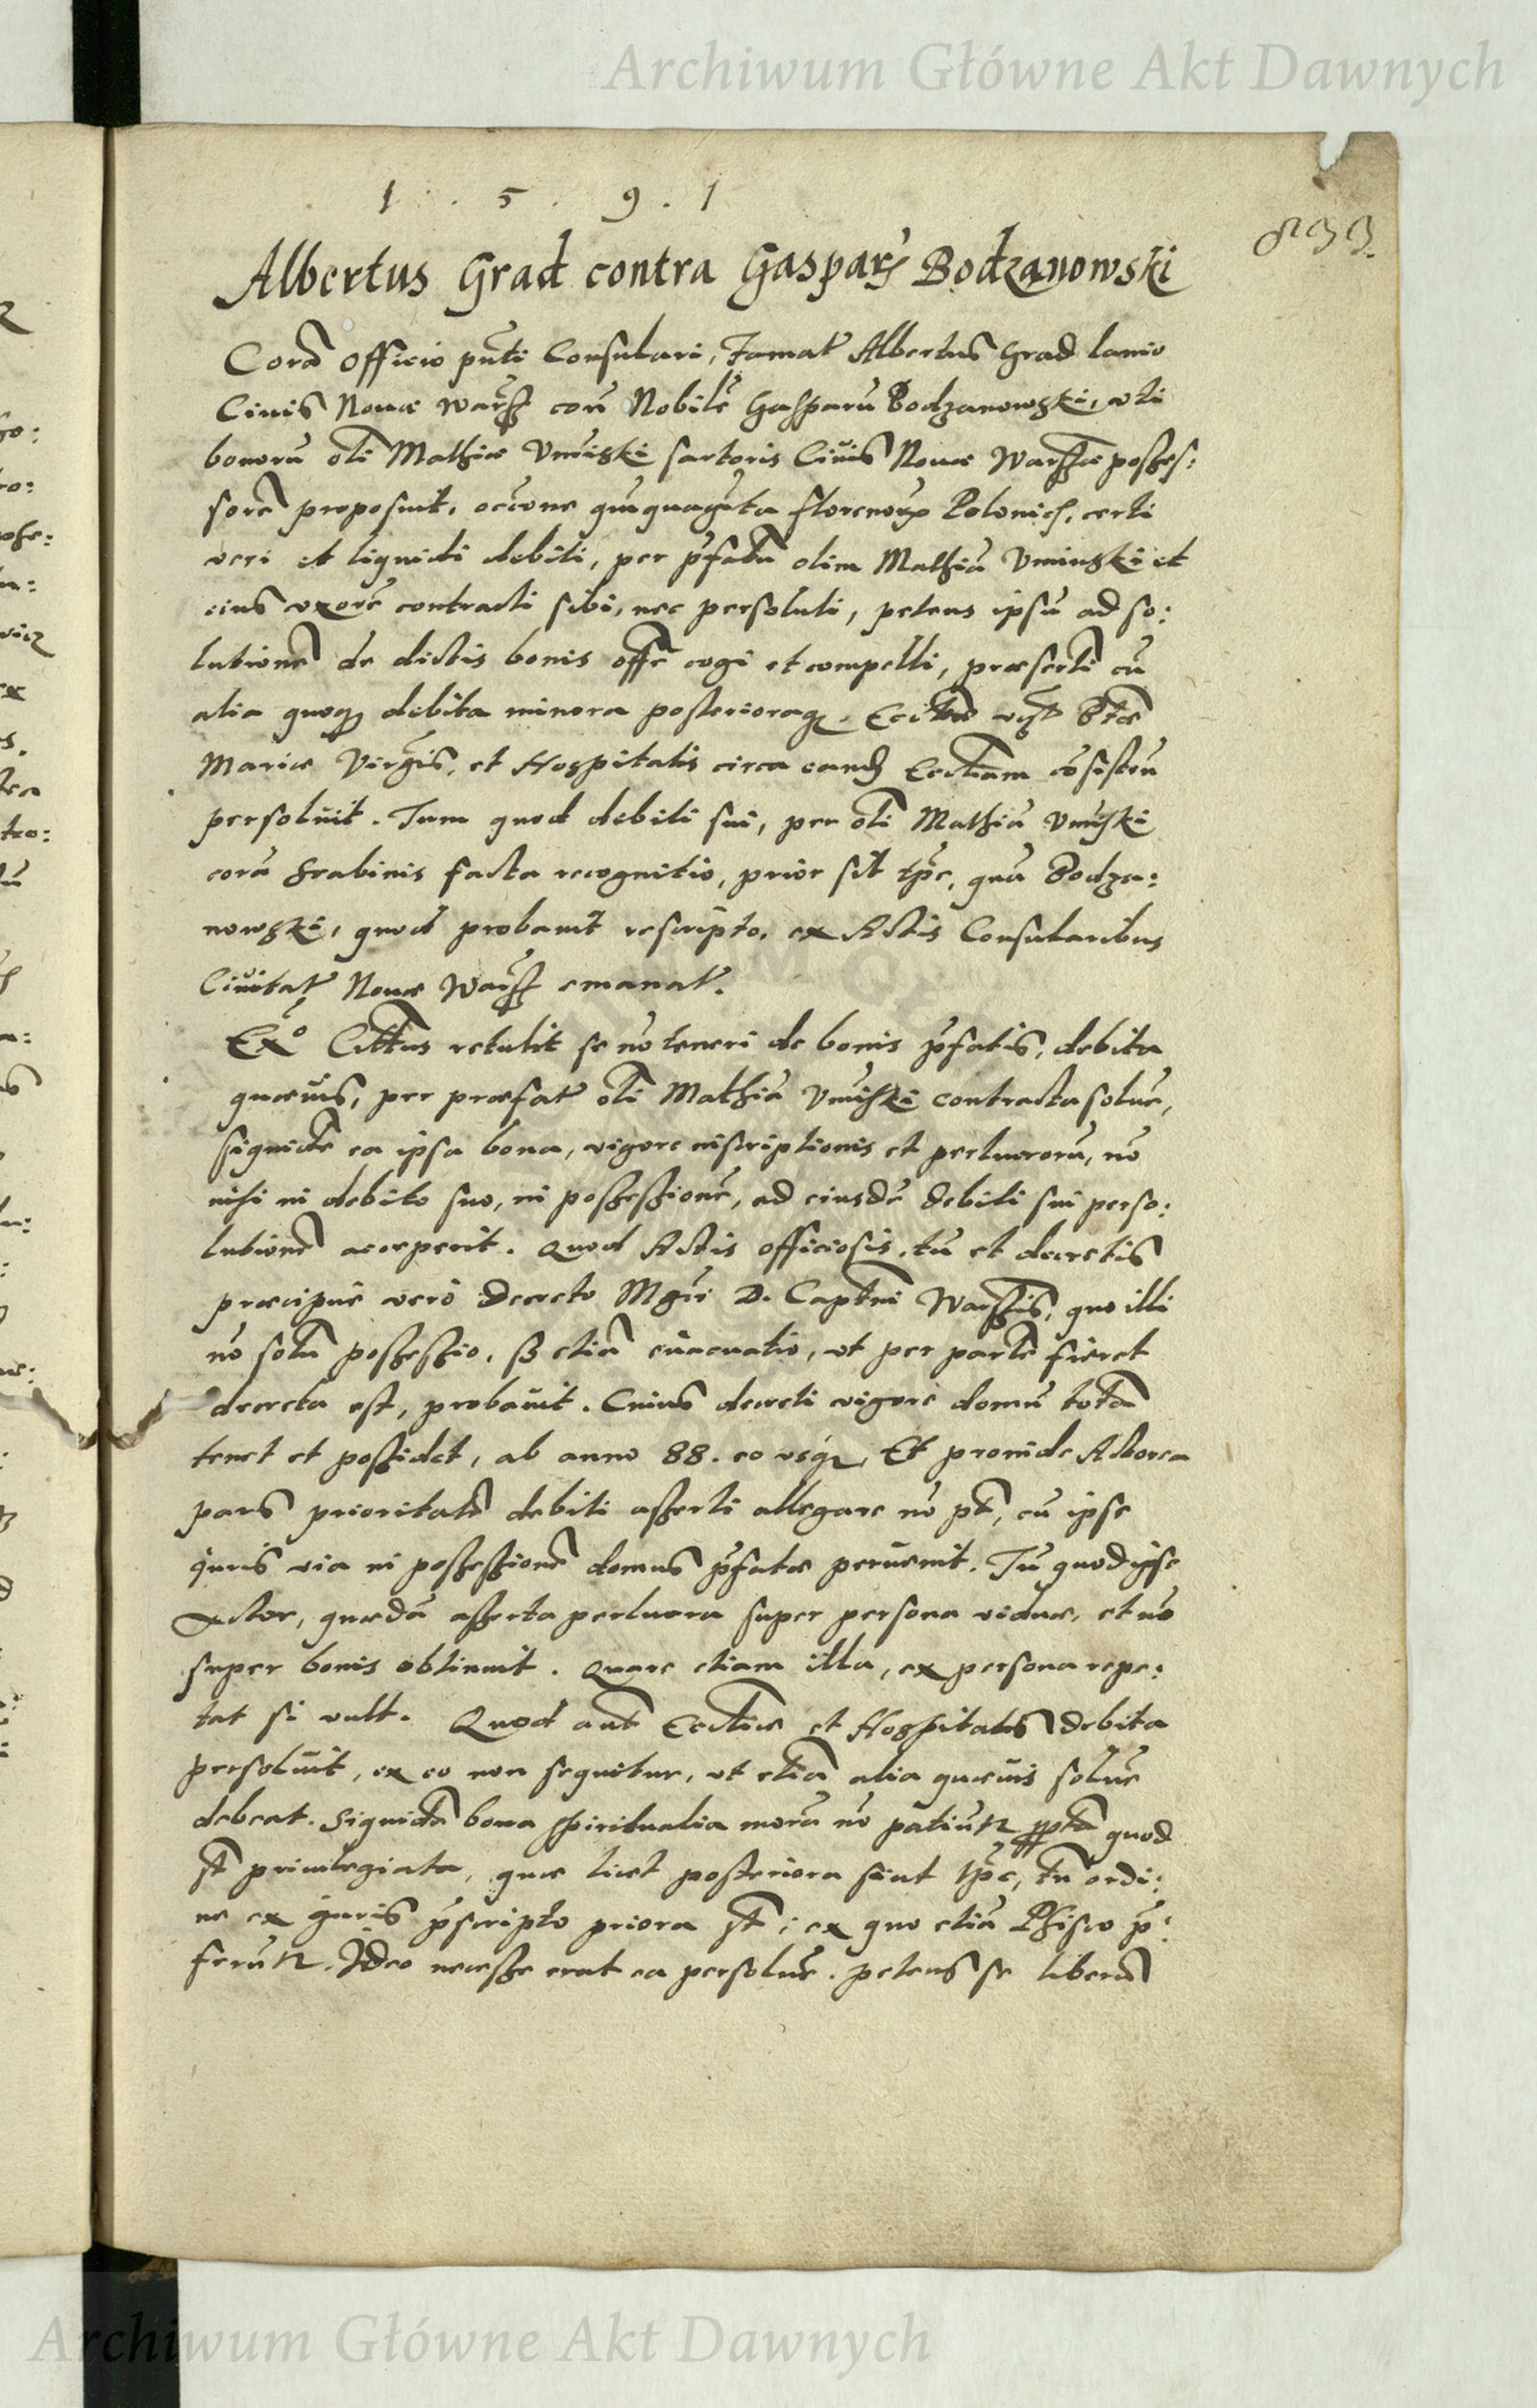 Archiwum Główne Akt Dawnych
1 . 5 . 9 . 1
833.
Albertus Grad contra Gasparē Bodzanowski
Corā Officio pn̄ti Consulari, Famat9 Albertus Grad lanio
Ciuis Nouæ Warss con Nobilē Gasparū Bodzanowski, vti
bonorū oli Mathiæ Vmiński sartoris Ciuis Nouæ Warssæ posses:
sorē proposuit, occone quīquagīta florenorū Polonicł, certi
veri et liquidi debiti, per p̄fatū olim Mathiā Vminski et
eius vxorē contracti sibi, nec persoluti, petens ipsū ad so:
lutionē de dictis bonis offē cogi et compelli, præserti cū
alia quoq3 debita minora posterioraq3 Ecclæ vst Btæ
Mariæ Virgis, et Hospitalis circa eand3 Eccliam cōsisten
persoluit. Tum quod debiti sui, per oli Mathiā Vmiski
corā Scabinis facta recognitio, prior sit tpe, quā Bodza:
nowski, quod probauit rescripto, ex Actis Consularibus
Ciuitat9 Nouæ Warss emanat9.
Exo Cittus retulit se nō teneri de bonis p̄fatis, debita
quæuis, per præfat9 oli Mathiā Vmiski contracta solue,
siquidē ea ipsa bona, vigore inscriptionis et perlucrorū, nō
nisi in debito suo, in possessionē, ad eiusdē debiti sui perso:
lutionē acceperit. Quod Actis officiosis, tū et decretis
præcipuè verò decreto Mgci D. Captnei Warssis, quo illi
nō solū possessio, sz etiā euacuatio, vt per partē fieret
decreta est, probauit. Cuius decreti vigore domū totā
tenet et possidet, ab anno 88. eo vsq3, Et proinde Actorea
pars prioritatē debiti asserti allegare nō pt, cū ipse
iuris via in possessionē domus p̄fatæ peruenit. Tū quod ipse
Actor, quædā asserta perlucra super persona viduæ, et nō
super bonis obtinuit. Quare etiam illa, ex persona repe:
tat si vult. Quod aut Eccliæ et Hospitalis debita
persoluit, ex eo non sequitur, vt etiā alia quæuis solue
debeat. Siquidē bona spiritualia morā nō patiūtr pptā quod
st priuilegiata, quæ licet posteriora sint tpe, tn ordi:
ne ex iuris p̄scripto priora st; ex quo etiā Phisco p̄:
ferūtr. Ideo necesse erat ea persolue. petens se liberū
Archiwum Główne Akt Dawnych